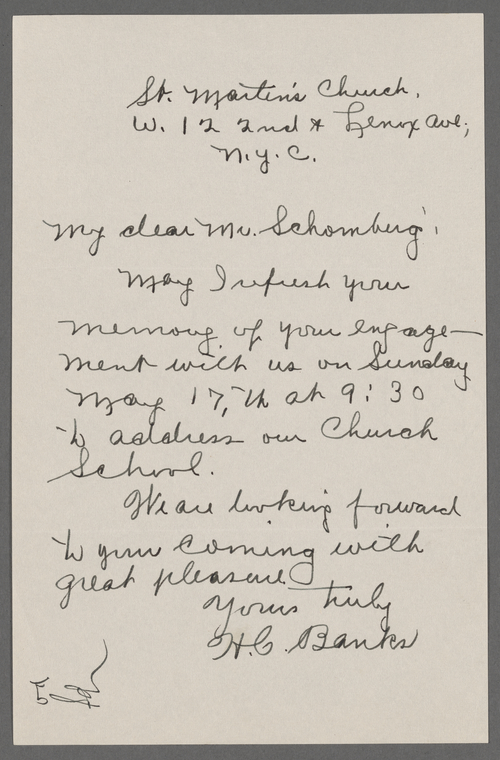 St. Martin's Church,
W. 122nd & Lenox Ave;
N.Y.C.
My dear Mr. Schomberg;
May I refresh your
memory of your engage-
ment with us on Sunday
May 17,th at 9:30
to address our Church
School.
We are looking forward
to your coming with
great pleasure.
Yours truly
H.C. Banks